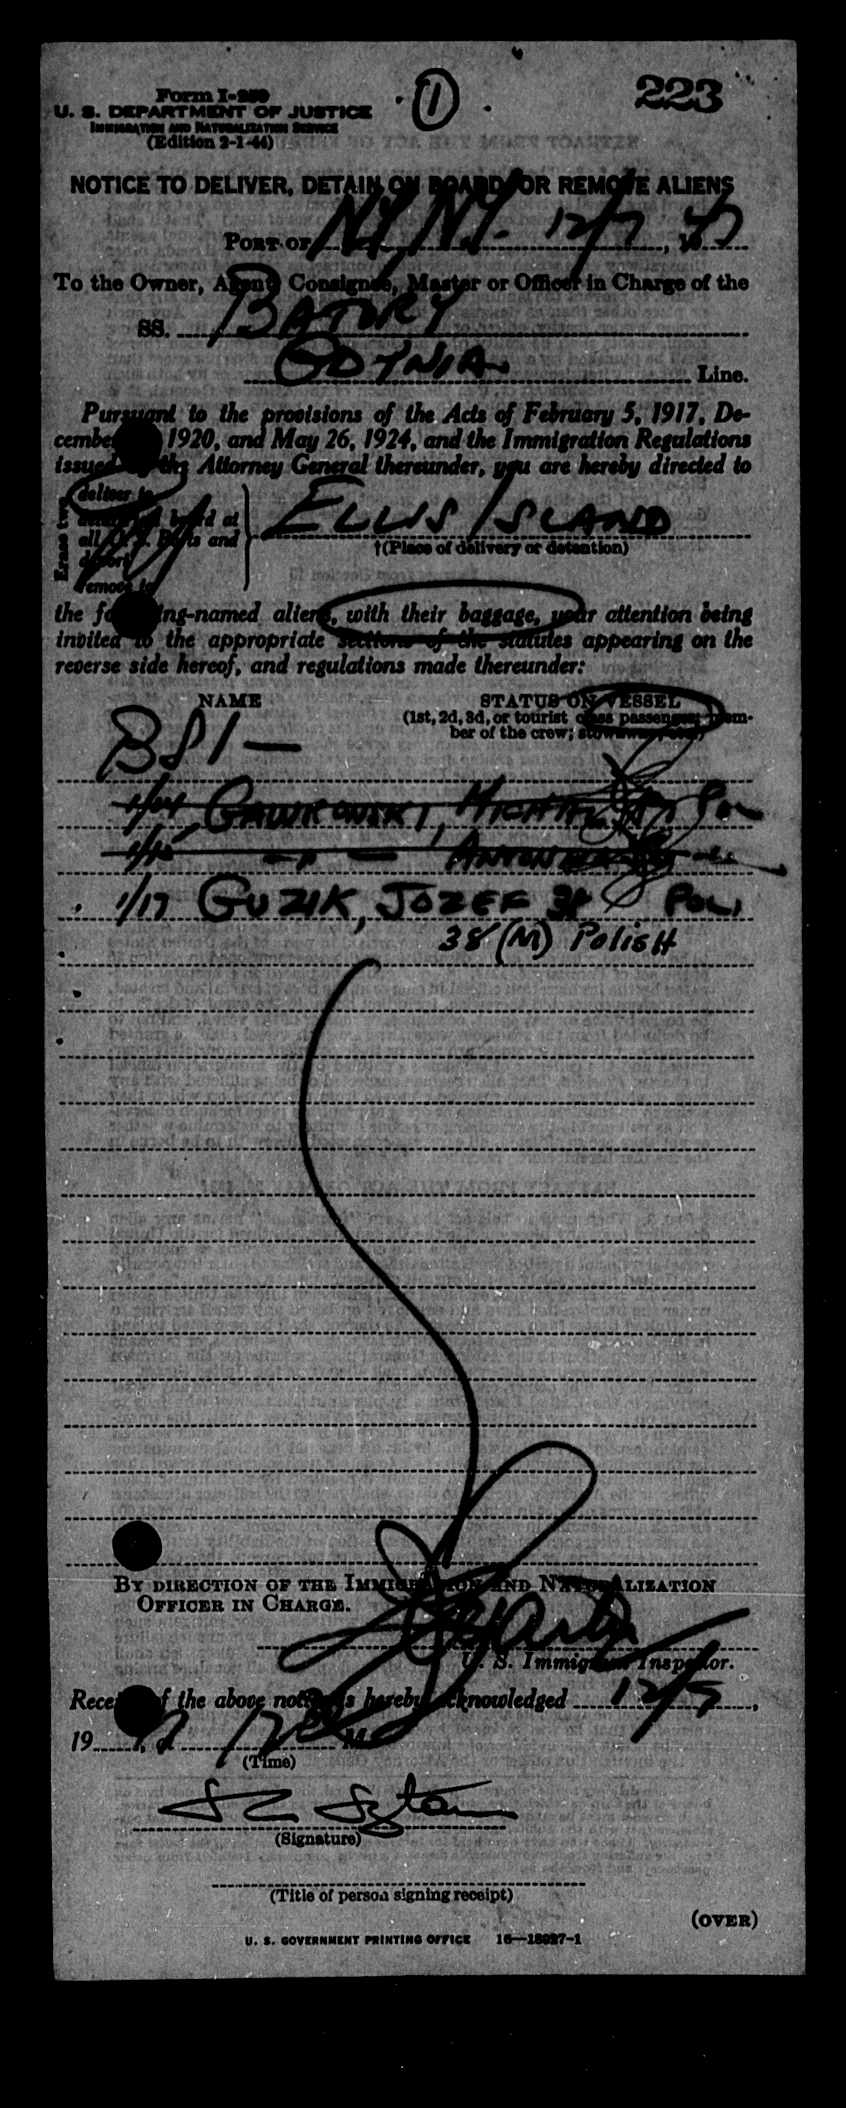 Form I-259
223
1
U. S. DEPARTMENT OF JUSTICE
IMMIGRATION AND NATURALIZATION SERVICE
(Edition 2-1-44)
NOTICE TO DELIVER, DETAIN ON BOARD, OR REMOVE ALIENS
PORT OF NY, NY. 12/7, 1947
To the Owner, Agent, Consignee, Master or Officer in Charge of the
SS. BATORY
GDYNIA Line.
Pursuant to the provisions of the Acts of February 5, 1917, De-
cember 1920, and May 26, 1924, and the Immigration Regulations
issued by the Attorney General thereunder, you are hereby directed to
Erase two
deliver to
detain on board at
all U. S. Ports and
deport
remove to
ELLIS ISLAND
†(Place of delivery or detention)
the following-named aliens, with their baggage, your attention being
invited to the appropriate sections of the statutes appearing on the
reverse side hereof, and regulations made thereunder:
NAME
STATUS ON VESSEL
(1st, 2d, 3d, or tourist class passenger; mem-
ber of the crew; stowaway, etc.)
BSI —
1/14 GAWKOWSKI, MICHAEL POL
1/15 — " — ANTONINA
1/17 GUZIK, JOZEF 38 POL
38 (M) POLISH
BY DIRECTION OF THE IMMIGRATION AND NATURALIZATION
OFFICER IN CHARGE.
U. S. Immigrant Inspector.
Receipt of the above notice is hereby acknowledged 12/7,
19 M.
(Time)
(Signature)
(Title of person signing receipt)
(OVER)
U. S. GOVERNMENT PRINTING OFFICE 16—18027-1